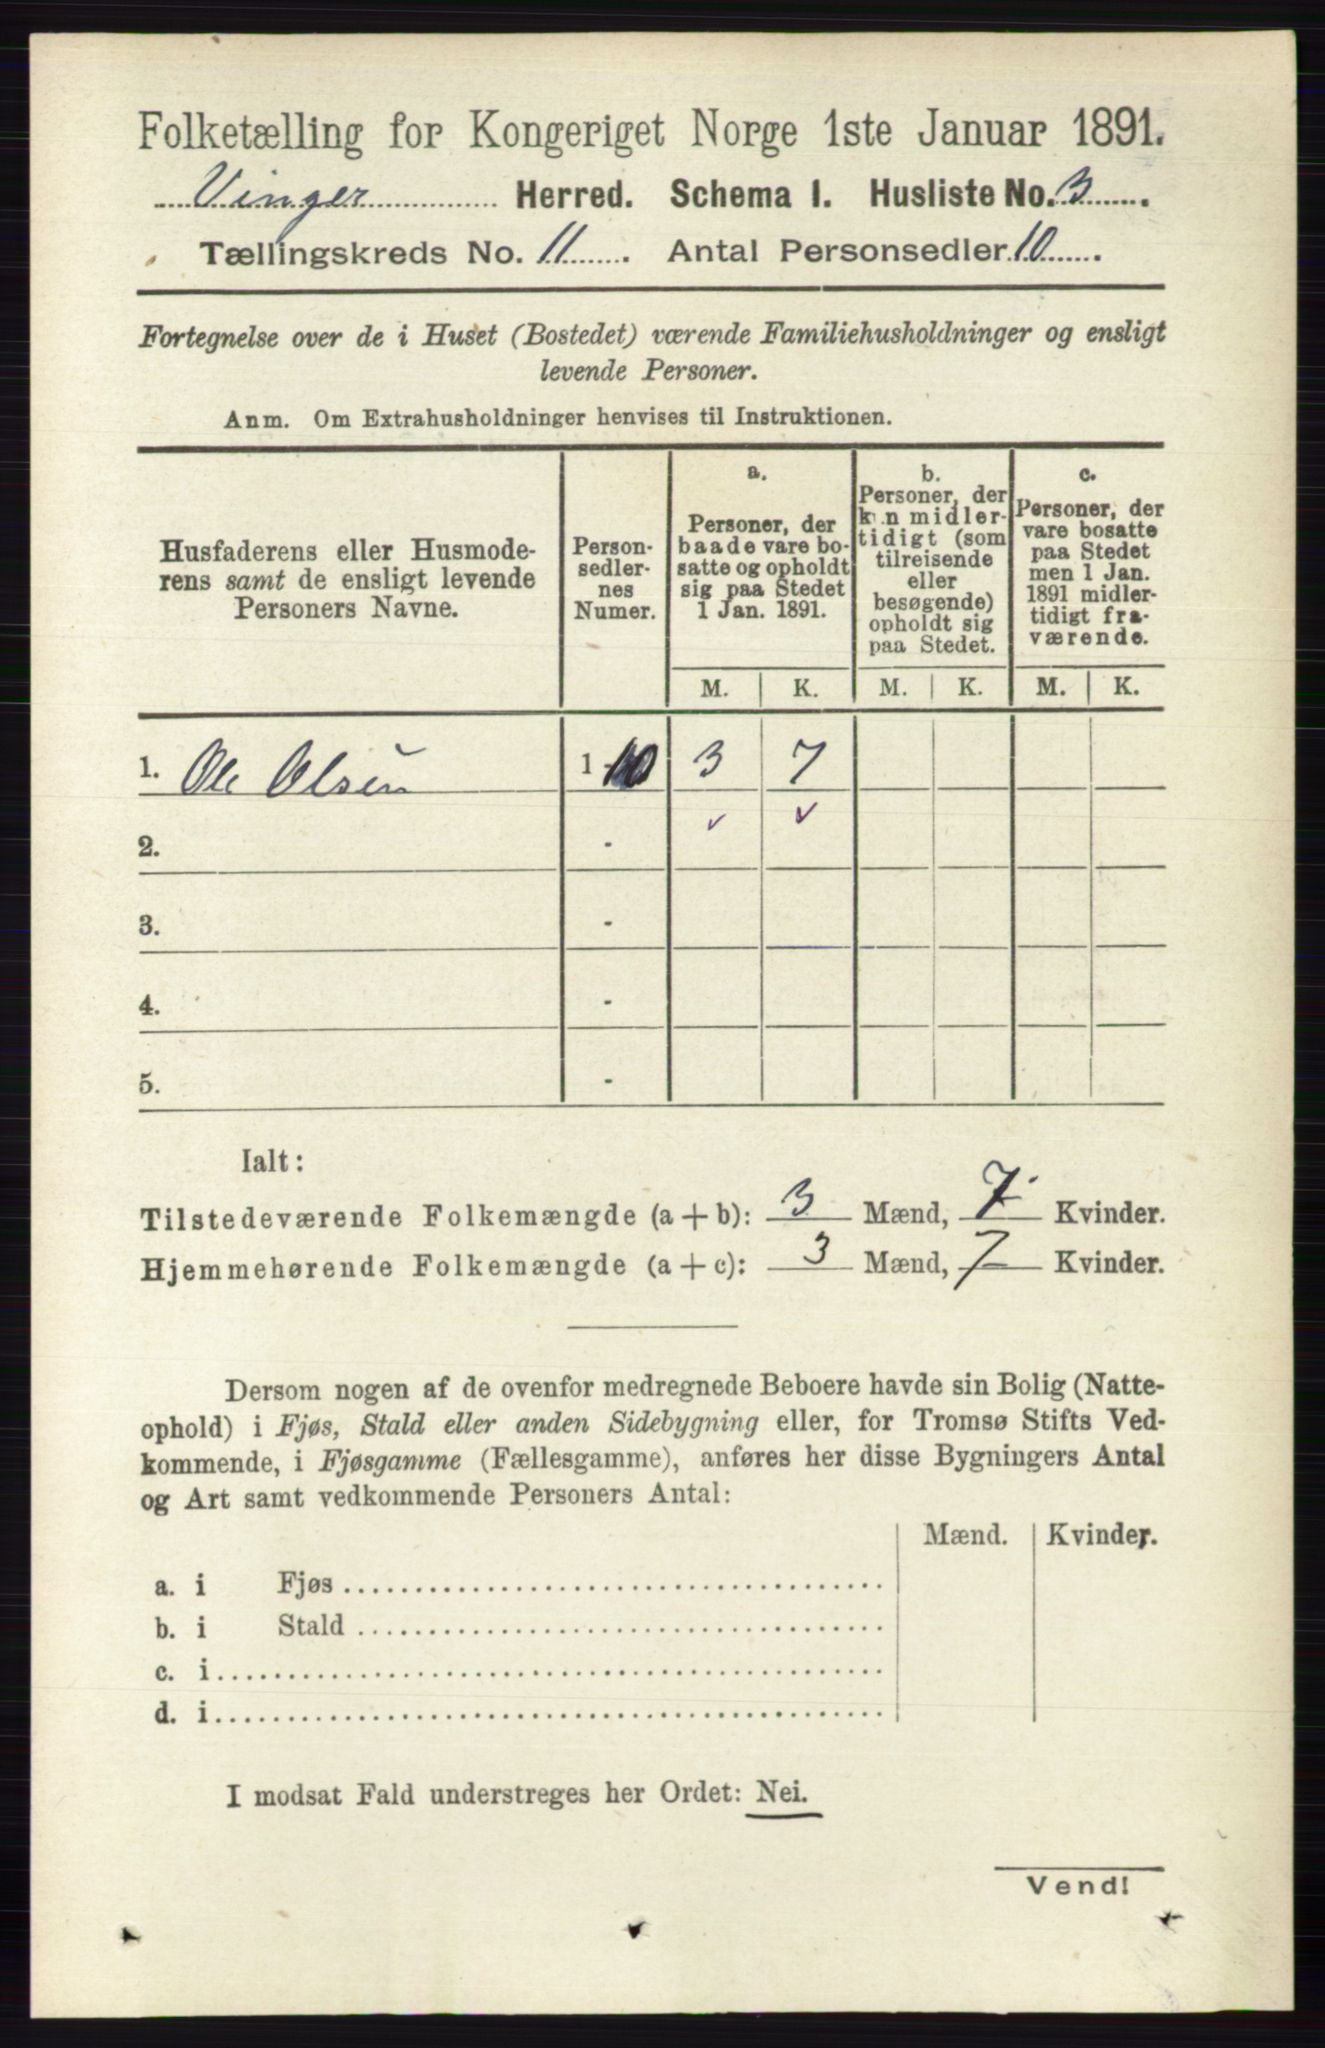 Folketælling for Kongeriget Norge 1ste Januar 1891.
Vinger Herred. Schema I. Husliste No. 3.
Tællingskreds No. 11. Antal Personsedler 10.
Fortegnelse over de i Huset (Bostedet) værende Familiehusholdninger og ensligt
levende Personer.
Anm. Om Extrahusholdninger henvises til Instruktionen.
Husfaderens eller Husmode-
rens samt de ensligt levende
Personers Navne.
Person-
sedler-
nes
Numer.
a.
Personer, der
baade vare bo-
satte og opholdt
sig paa Stedet
1 Jan. 1891.
b.
Personer, der
kun midler-
tidigt (som
tilreisende
eller
besøgende)
opholdt sig
paa Stedet.
c.
Personer, der
vare bosatte
paa Stedet
men 1 Jan.
1891 midler-
tidigt fra-
værende.
M. K. M. K. M. K.
1. Ole Olsen 1 - 10 3 7
✓ ✓
2. -
3. -
4. -
5. -
Ialt:
Tilstedeværende Folkemængde (a + b): 3 Mænd, 7 Kvinder.
Hjemmehørende Folkemængde (a + c): 3 Mænd, 7 Kvinder.
Dersom nogen af de ovenfor medregnede Beboere havde sin Bolig (Natte-
ophold) i Fjøs, Stald eller anden Sidebygning eller, for Tromsø Stifts Ved-
kommende, i Fjøsgamme (Fællesgamme), anføres her disse Bygningers Antal
og Art samt vedkommende Personers Antal:
Mænd. Kvinder.
a. i Fjøs
b. i Stald
c. i
d. i
I modsat Fald understreges her Ordet: Nei.
Vend!